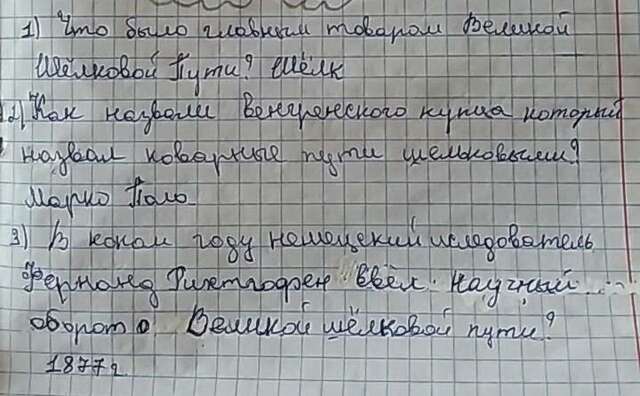 1) Что было главным товаром Великой
Шёлковой Пути? Шёлк
2) Как назвали венгренского купца который
назвал коварные пути шельковыми?
Марко Поло
3) В каком году немецкий иследователь
Фернанд Рихтгофен ввёл научный
оборот о Великой шёлковой пути?
1877г